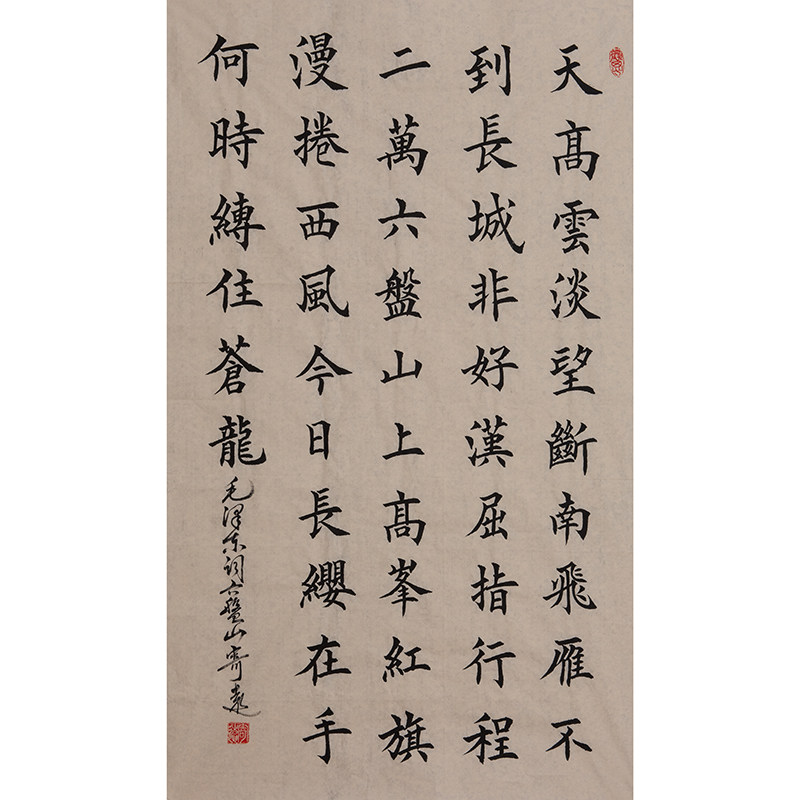 天髙雲淡望斷南飛雁不
到長城非好漢屈指行程
二萬六盤山上髙峯紅旗
漫捲西風今日長纓在手
何時縛住蒼龍
毛泽东词六盘山